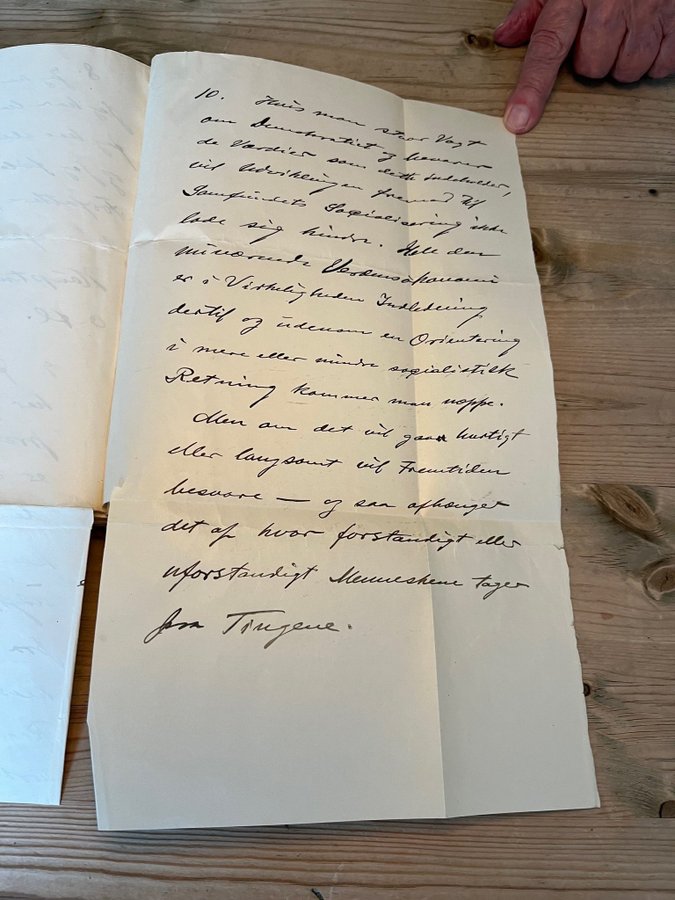 10. Hvis man staar Vagt
om Demokratiet og bevarer
de Værdier som dette indeholder,
vil Udviklingen fremad til
Samfundets Socialisering ikke
lade sig hindre. Hele den
nuværende Verdensøkonomi
er i Virkeligheden Indledning
dertil og udenom en Orientering
i mere eller mindre socialistisk
Retning kommer man næppe.
Men om det vil gaa hurtigt
eller langsomt vil Fremtiden
besvare — og saa afhænger
det af hvor forstandigt eller
uforstandigt Menneskene tager
paa Tingene.